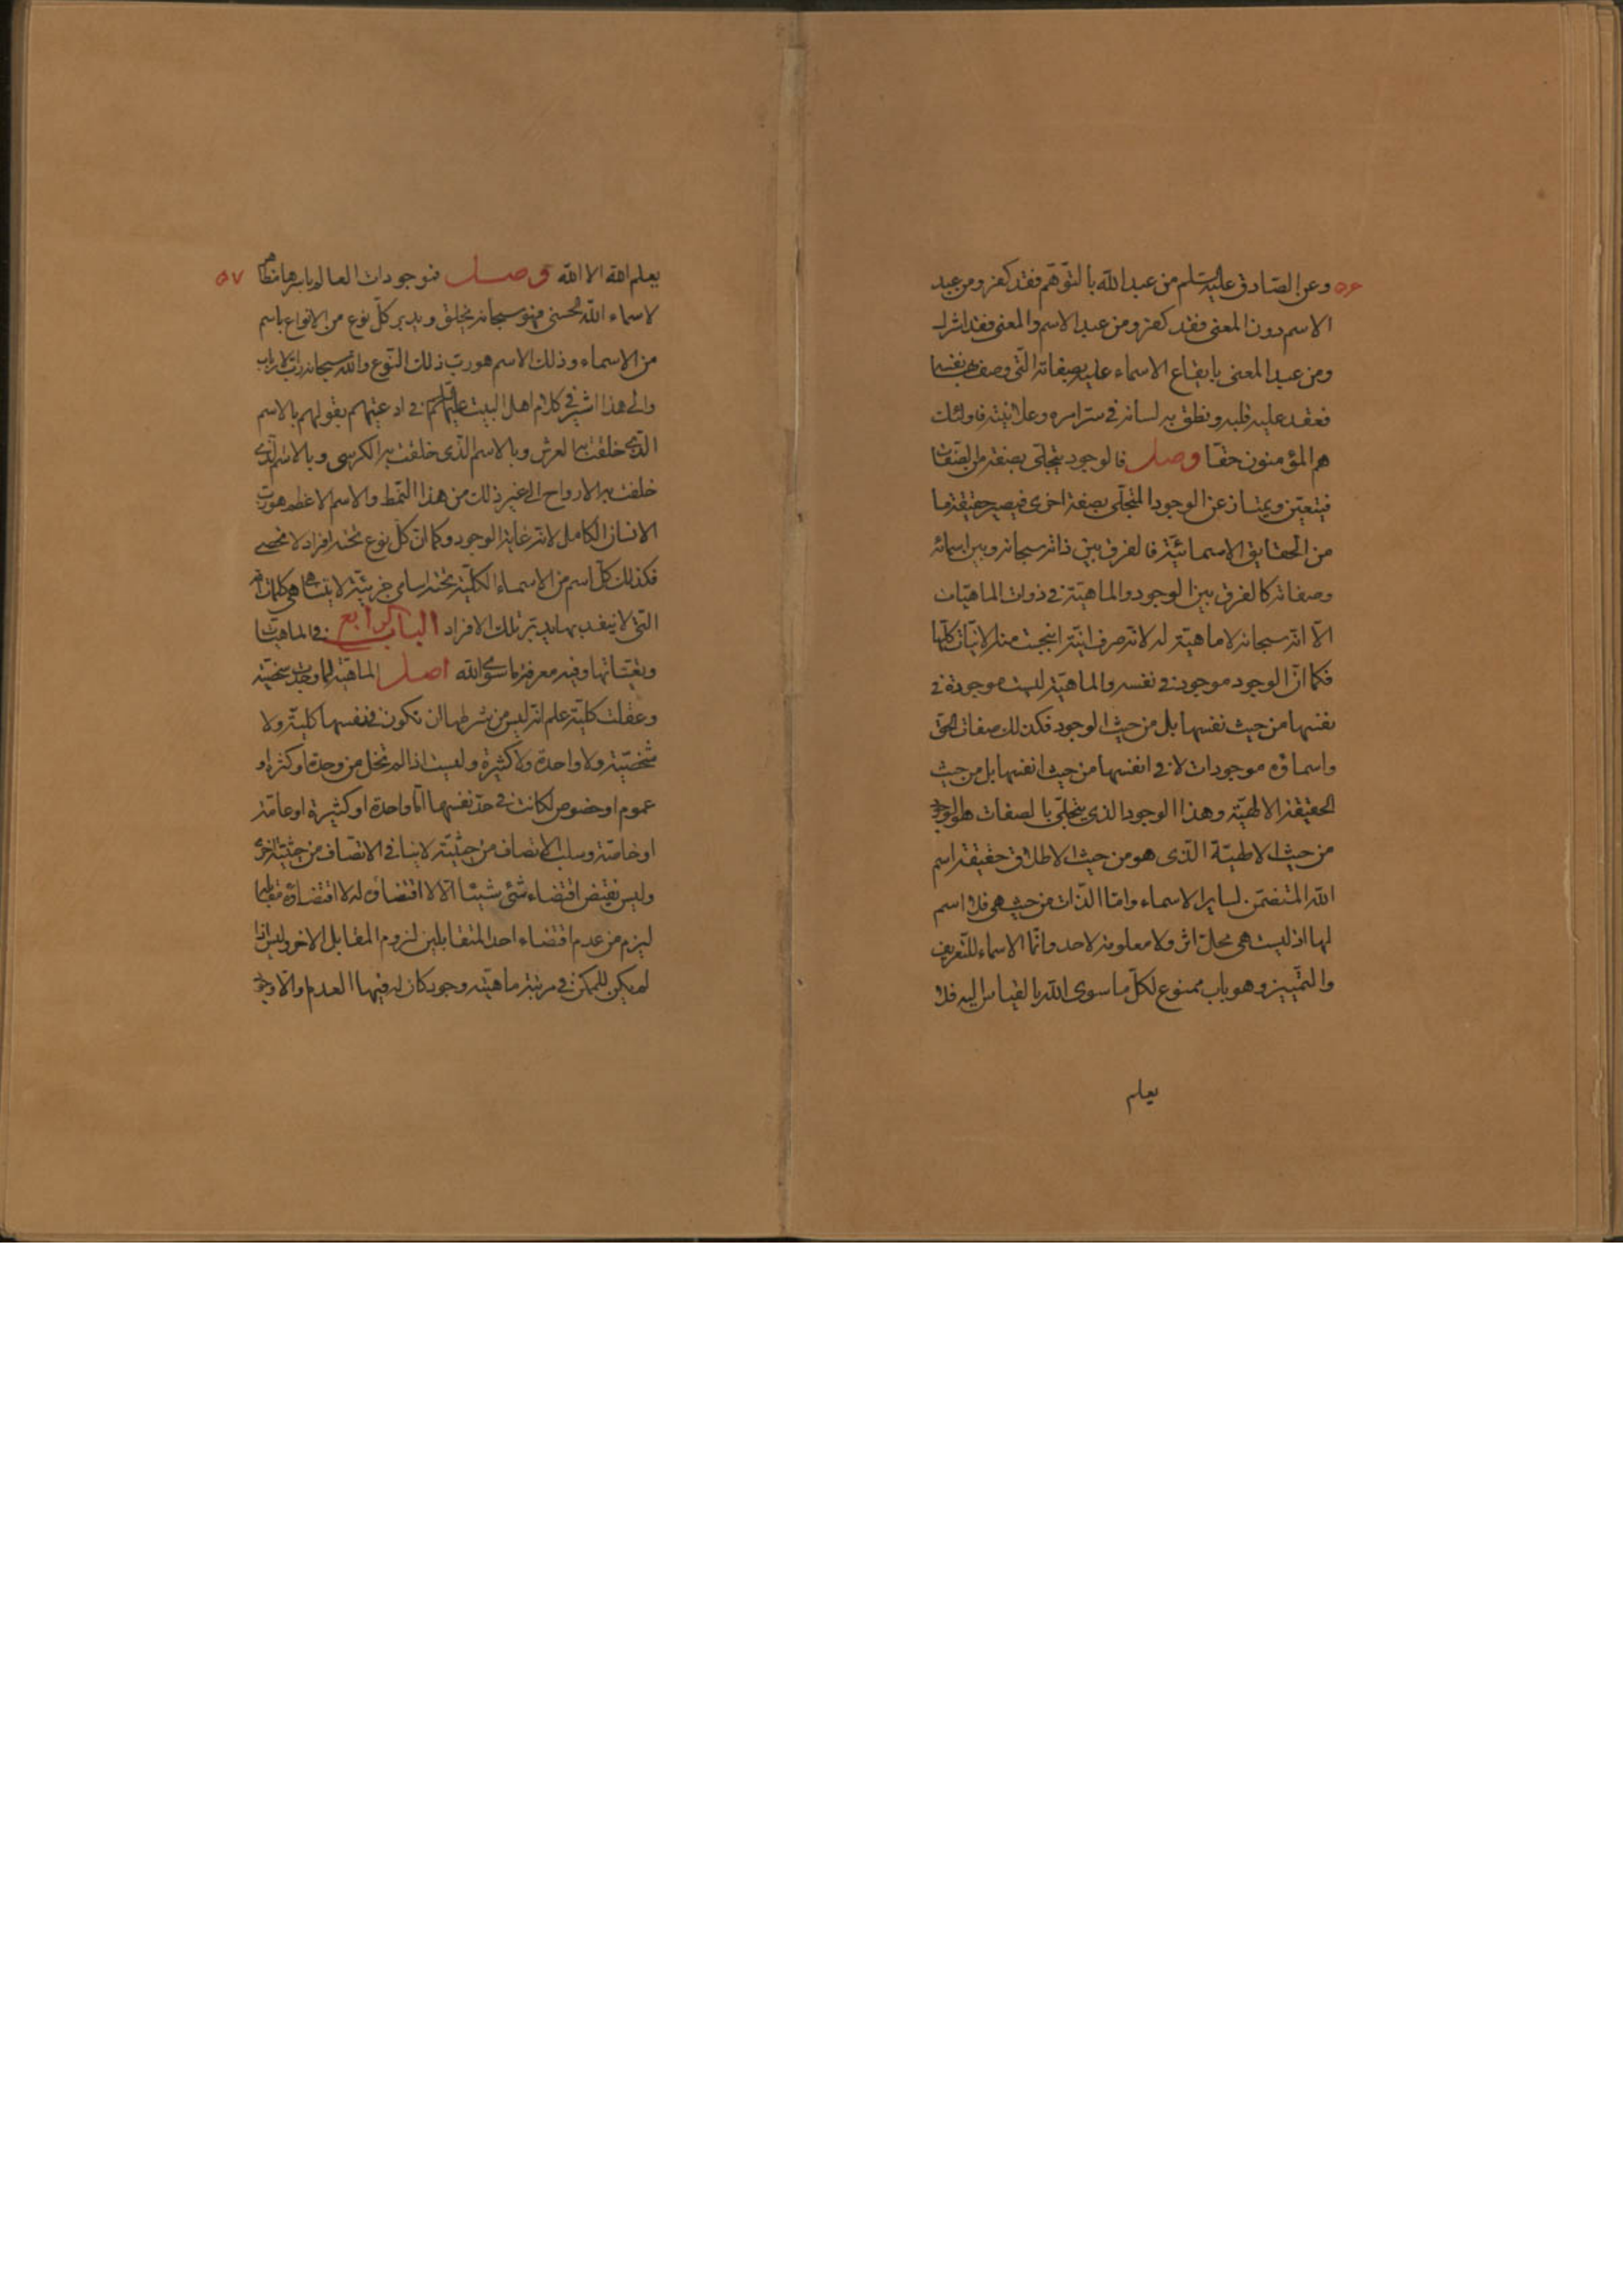 ۵۶ وعن الصّادق عليه السّلم من عبد اللّه بالتّوهّم فقد كفر ومن عبد
الاسم دون المعنى فقد كفر ومن عبد الاسم والمعنى فقد اشرك
ومن عبد المعنى بايقاع الاسماء عليه بصفاته الّتى وصف بها نفسه
فعقد عليه قلبه ونطق به لسانه فى سرّ امره وعلانيته فاولئك
هم المؤمنون حقّا وصل فالوجود يتجلّى بصفة من الصّفات
فيتعيّن ويمتاز عن الوجود المتجلّى بصفة اخرى فيصير حقيقة ما
من الحقايق الاسمائيّة فالفرق بين ذاته سبحانه وبين اسمائه
وصفاته كالفرق بين الوجود والماهيّة فى ذوات الماهيّات
الّا انّه سبحانه لا ماهيّة له لانّه صرف انيّة انبجست منه الانيّات كلّها
فكما انّ الوجود موجود فى نفسه والماهيّة ليست موجودة فى
نفسها من حيث نفسها بل من حيث الوجود فكذلك صفات الحق
واسماؤه موجودات لا فى انفسها من حيث انفسها بل من حيث
الحقيقة الالهيّة وهذا الوجود الذى يتجلّى بالصفات هو الوجود
من حيث الالهيّة الّذى هو من حيث الاطلاق حقيقة اسم
اللّه المتضمّن لساير الاسماء وامّا الذّات من حيث هى فلا اسم
لها اذ ليست هى محلّ اثر ولا معلومة لاحد وانّما الاسماء للتّعريف
والتّمييز وهو باب ممنوع لكلّ ما سوى اللّه بالقياس اليه فلا
يعلم
يعلم اللّه الا اللّه وصل فموجودات العالم باسرها مظاهر ۵۷
لاسماء اللّه الحسنى فهو سبحانه يخلق ويدبر كلّ نوع من الانواع باسم
من الاسماء وذلك الاسم هو ربّ ذلك النّوع واللّه سبحانه ربّ الارباب
والى هذا اشير فى كلام اهل البيت عليهم السّلم فى ادعيتهم بقولهم بالاسم
الّذى خلقت به العرش وبالاسم الّذى خلقت به الكرسى وبالاسم الّذى
خلقت به الارواح الى غير ذلك من هذا النّمط والاسم الاعظم هو ربّ
الانسان الكامل لانّه غاية الوجود وكما انّ كلّ نوع تحته افراد لا تحصى
فكذلك كلّ اسم من الاسماء الكلّيّة تحته اسامى جزئيّة لا يتناهى هى كلمات اللّه
التى لا ينفد بها يدبّر تلك الافراد الباب الرابع فى الماهيّات
وتعيّناتها وفيه معرفة ما سوى اللّه اصل الماهيّة لما وجدت شخصيّة
وعقلت كليّة علم انّه ليس من شرطها ان تكون فى نفسها كليّة ولا
شخصيّة ولا واحدة ولا كثيرة وليست اذا لم تخل من وحدة او كثرة او
عموم او خصوص لكانت فى حدّ نفسها امّا واحدة او كثيرة او عامّة
او خاصّة وسلب الاتصاف من حيثيّة لا ينافى الاتّصاف من حيثيّة اخرى
وليس نقيض اقتضاء شئ شيئا الّا لا اقتضاؤه له لا اقتضاؤه مقابله
ليزم من عدم اقتضاء احد المتقابلين لزوم المقابل الاخر وليس اذا
لم يكن للممكن فى مرتبة ماهيّته وجود كان له فيها العدم والّا